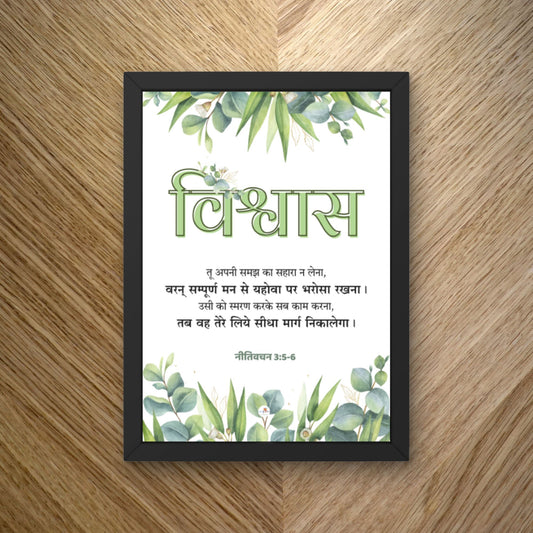 विश्वास
तू अपनी समझ का सहारा न लेना,
वरन् सम्पूर्ण मन से यहोवा पर भरोसा रखना।
उसी को स्मरण करके सब काम करना,
तब वह तेरे लिये सीधा मार्ग निकालेगा।
नीतिवचन 3:5-6